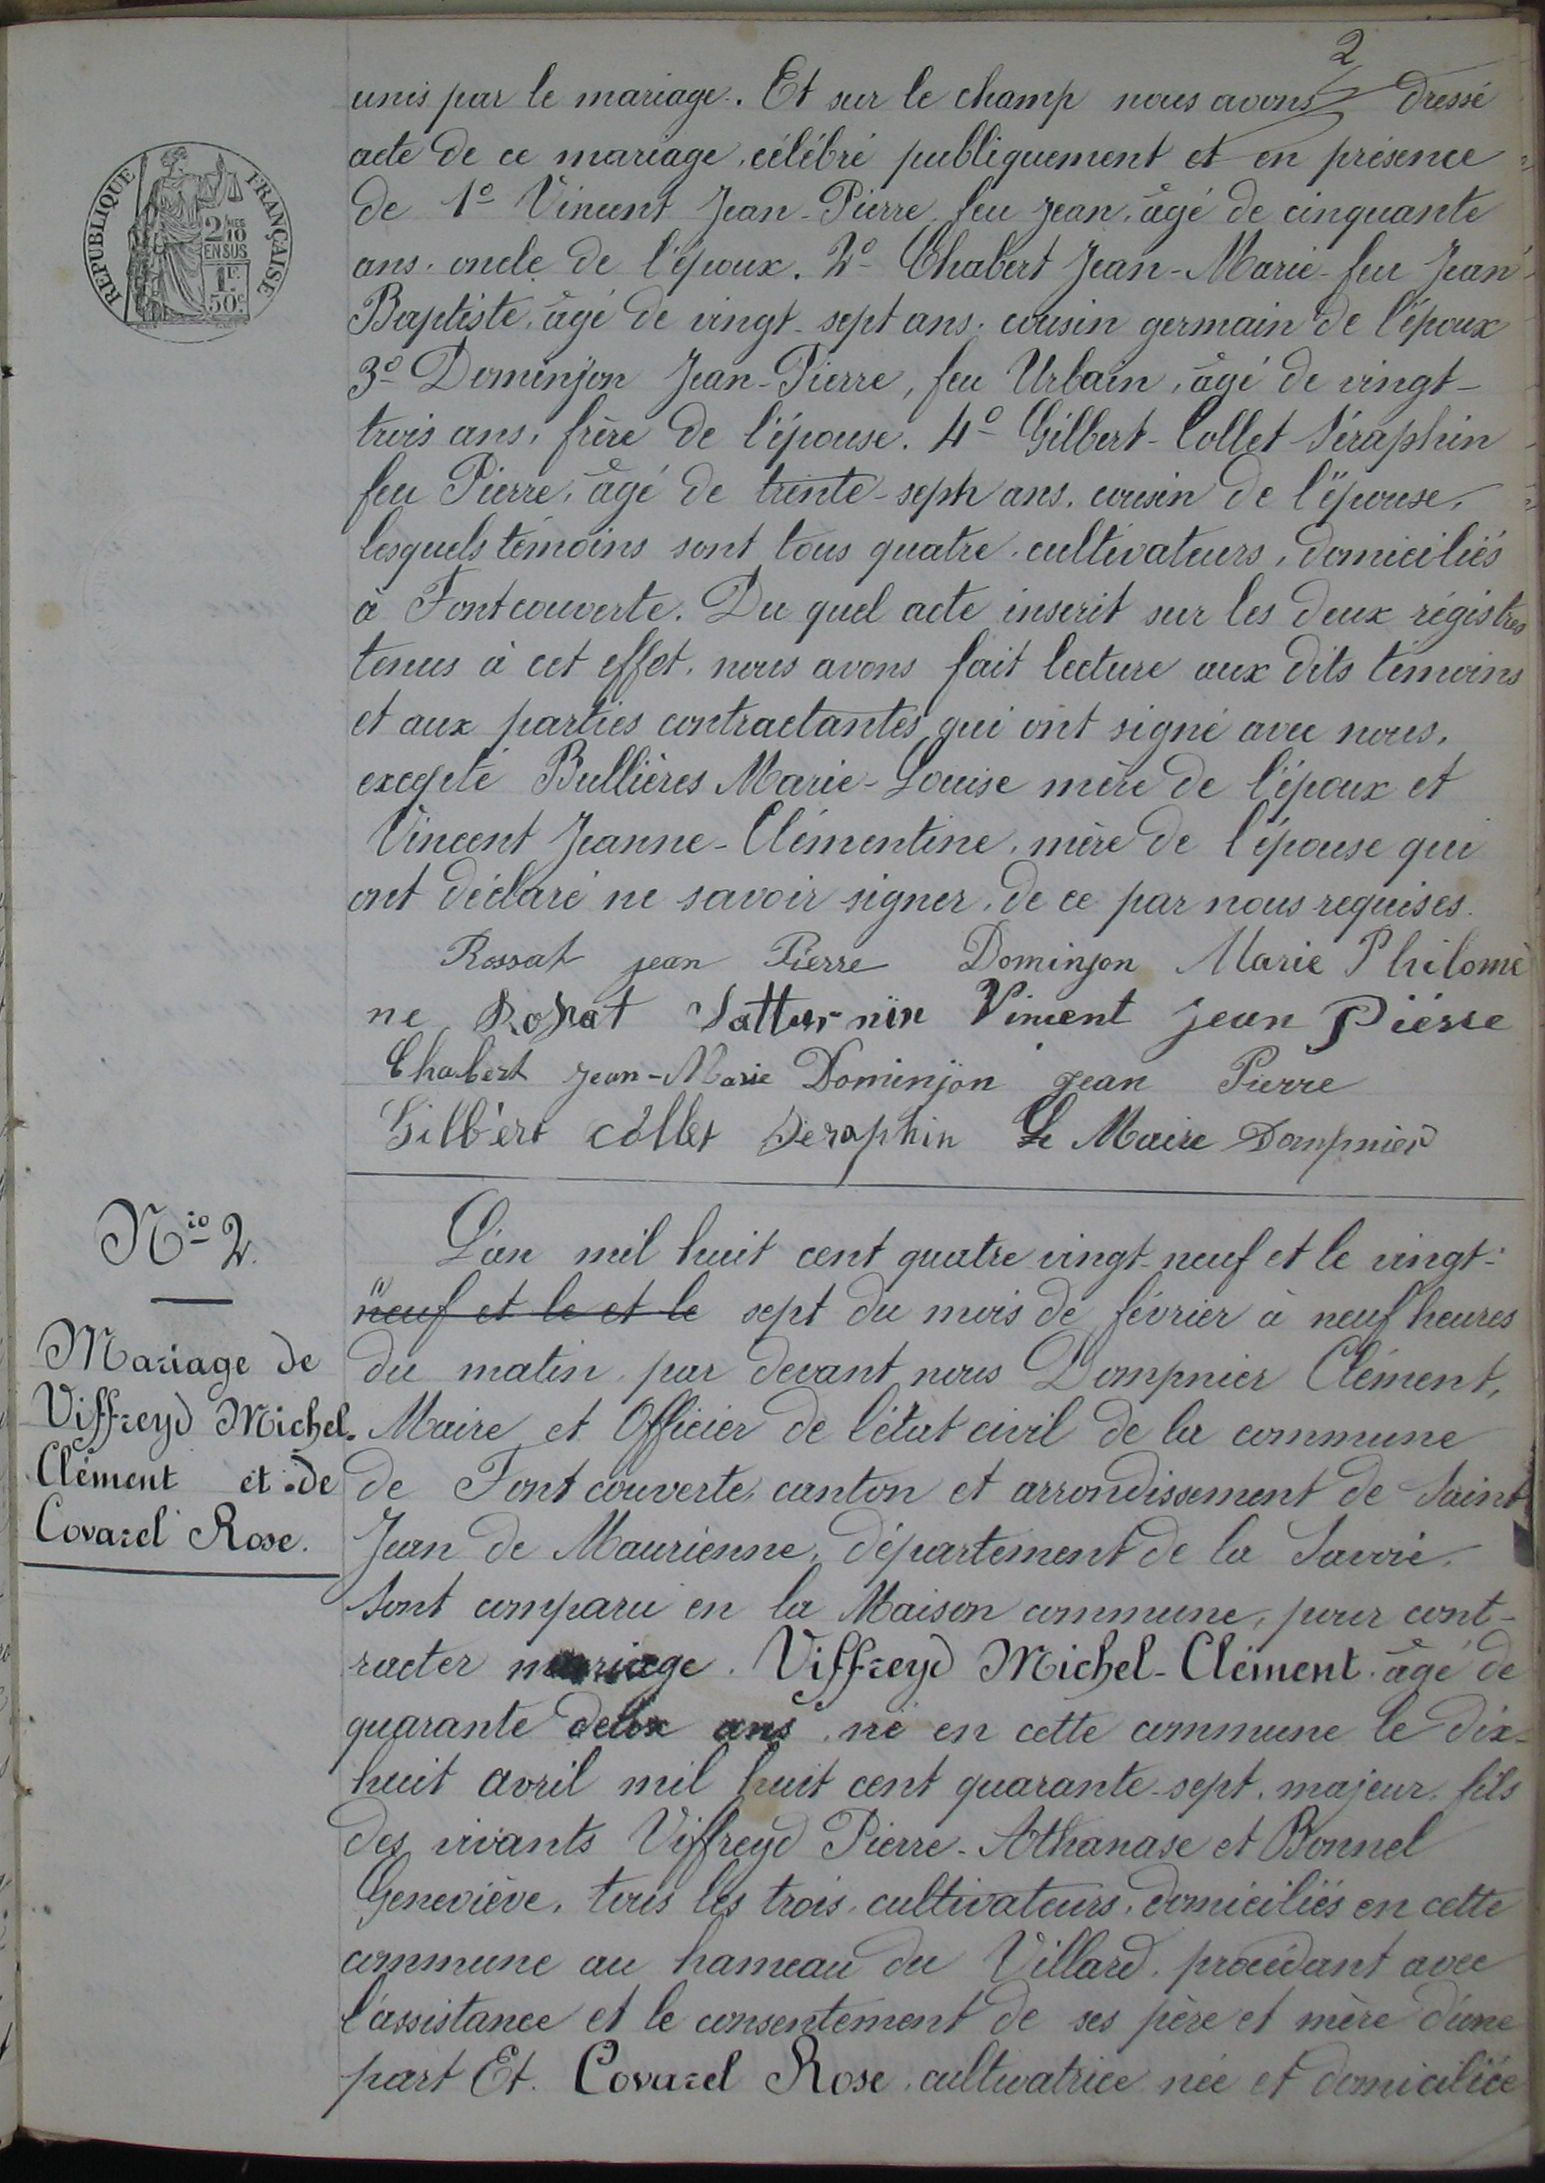 2
unis par le mariage. Et sur le champ nous avons dressé
acte de ce mariage, célébré publiquement et en présence
de 1º Vincent Jean-Pierre, feu Jean, âgé de cinquante
ans, oncle de l'époux. 2º Chabert Jean-Marie feu Jean
Baptiste, âgé de vingt-sept ans, cousin germain de l'époux
3º Dominjon Jean-Pierre, feu Urbain, âgé de vingt-
trois ans, frère de l'épouse. 4º Gilbert-Collet Séraphin
feu Pierre, âgé de trente-seph ans, cousin de l'épouse,
lesquels témoins sont tous quatre, cultivateurs, domiciliés
à Fontcouverte. Du quel acte inscrit sur les deux régistres
tenus à cet effet, nous avons fait lecture aux dits témoins
et aux parties contractantes qui ont signé avec nous,
excepté Bullières Marie-Louise mère de l'époux et
Vincent Jeanne-Clémentine, mère de l'épouse qui
ont déclaré ne savoir signer, de ce par nous requises.
Rossat jean Pierre Dominjon Marie Philomè
ne Rossat Satturnin Vincent jean Pièrre
Chabert Jean-Marie Dominjon Jean Pierre
Gilbert Collet Seraphin Le Maire Dompnier
REPUBLIQUE FRANÇAISE
2/10 MES
EN SUS
1F.
50c.
Nro 2.
Mariage de
Viffreyd Michel-
Clément et de
Covarel Rose.
L'an mil huit cent quatre vingt-neuf et le vingt-
neuf et le et le sept du mois de février à neuf heures
du matin, par devant nous Dompnier Clément,
Maire et Officier de l'état civil de la commune
de Fontcouverte, canton et arrondissement de Saint
Jean de Maurienne, département de la Savoie,
Sont comparu en la Maison commune, pour cont-
racter mariage. Viffreyd Michel-Clément, âgé de
quarante deux ans, né en cette commune le dix-
huit avril mil huit cent quarante-sept, majeur, fils
des vivants Viffreyd Pierre-Athanase et Bonnel
Geneviève, tous les trois, cultivateurs, domiciliés en cette
commune au hameau du Villard, procédant avec
l'assistance et le consentement de ses père et mère d'une
part Et. Covarel Rose, cultivatrice née et domiciliée